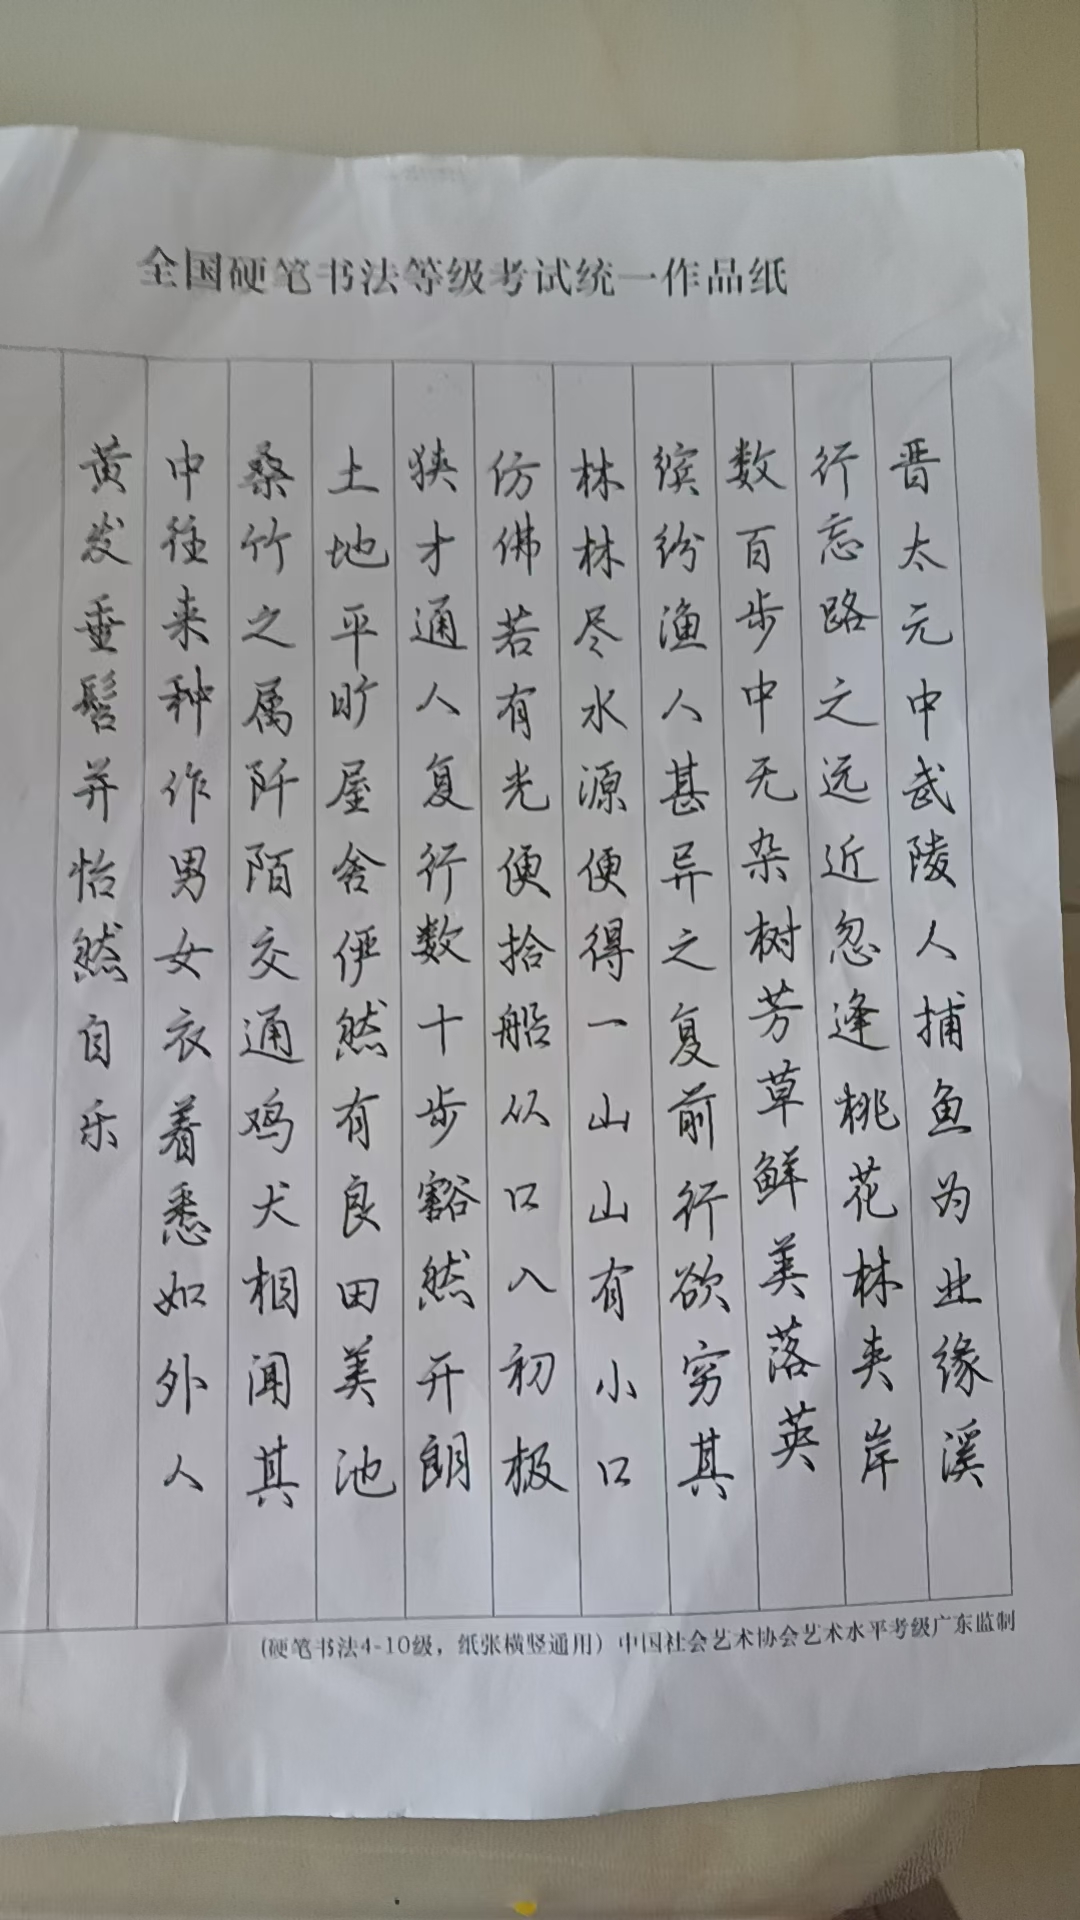 全国硬笔书法等级考试统一作品纸
晋太元中武陵人捕鱼为业缘溪
行忘路之远近忽逢桃花林夹岸
数百步中无杂树芳草鲜美落英
缤纷渔人甚异之复前行欲穷其
林林尽水源便得一山山有小口
仿佛若有光便拾船从口入初极
狭才通人复行数十步豁然开朗
土地平旷屋舍俨然有良田美池
桑竹之属阡陌交通鸡犬相闻其
中往来种作男女衣着悉如外人
黄发垂髫并怡然自乐
(硬笔书法4-10级，纸张横竖通用) 中国社会艺术协会艺术水平考级广东监制